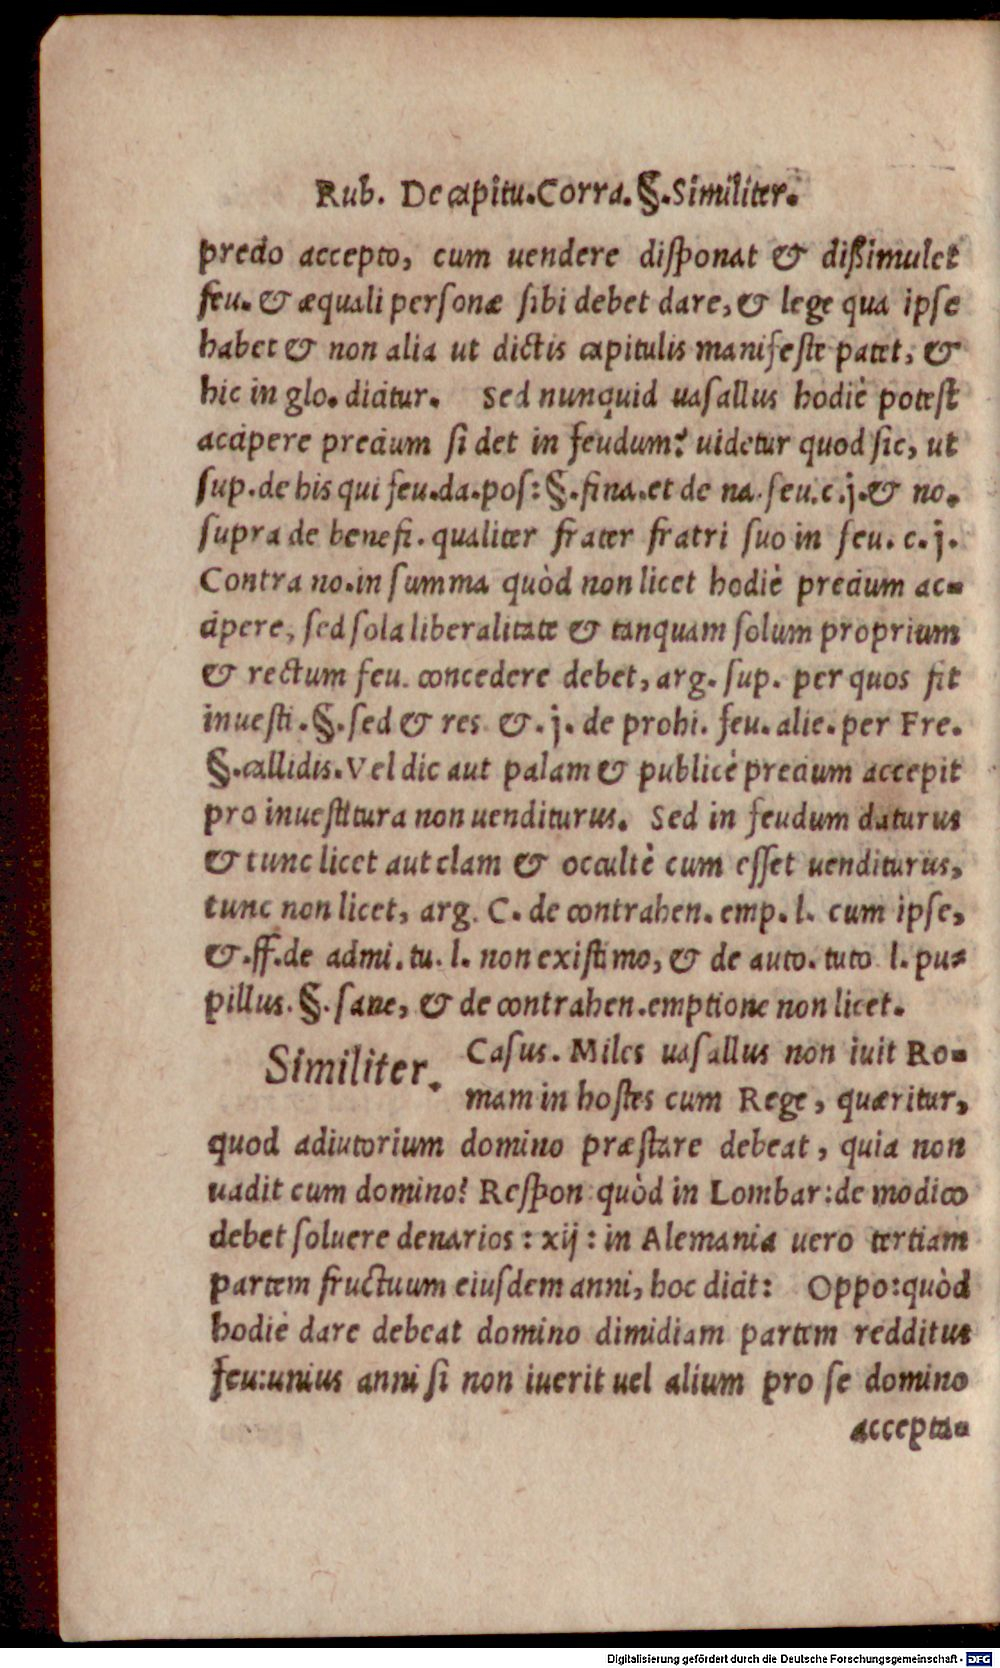 Rub. De capitu. Corra. §. Similiter.
predo accepto, cum uendere disponat & dißimulet
feu. & æquali personæ sibi debet dare, & lege qua ipse
habet & non alia ut dictis capitulis manifeste patet, &
hic in glo. dicitur. Sed nunquid uasallus hodiè potest
accipere precium si det in feudum? uidetur quod sic, ut
sup. de his qui feu. da. pos: §. fina. et de na. feu. c. j. & no.
supra de benefi. qualiter frater fratri suo in feu. c. j.
Contra no. in summa quòd non licet hodiè precium ac-
cipere, sed sola liberalitate & tanquam solum proprium
& rectum feu. concedere debet, arg. sup. per quos fit
inuesti. §. sed & res & . j. de prohi. feu. alie. per Fre.
§. callidis. Vel dic aut palam & publicè precium accepit
pro inuestitura non uenditurus. Sed in feudum daturus
& tunc licet aut clam & occultè cum esset uenditurus,
tunc non licet, arg. C. de contrahen. emp. l. cum ipse,
& . ff. de admi. tu. l. non existimo, & de auto. tuto l. pu-
pillus. §. sane, & de contrahen. emptione non licet.
Similiter. Casus. Miles uasallus non iuit Ro-
mam in hostes cum Rege, quæritur,
quod adiutorium domino præstare debeat, quia non
uadit cum domino? Respon quòd in Lombar: de modico
debet soluere denarios : xij : in Alemania uero tertiam
partem fructuum eiusdem anni, hoc dicit: Oppo: quòd
hodiè dare debeat domino dimidiam partem redditus
feu: unius anni si non iuerit uel alium pro se domino
accepta-
Digitalisierung gefördert durch die Deutsche Forschungsgemeinschaft - DFG